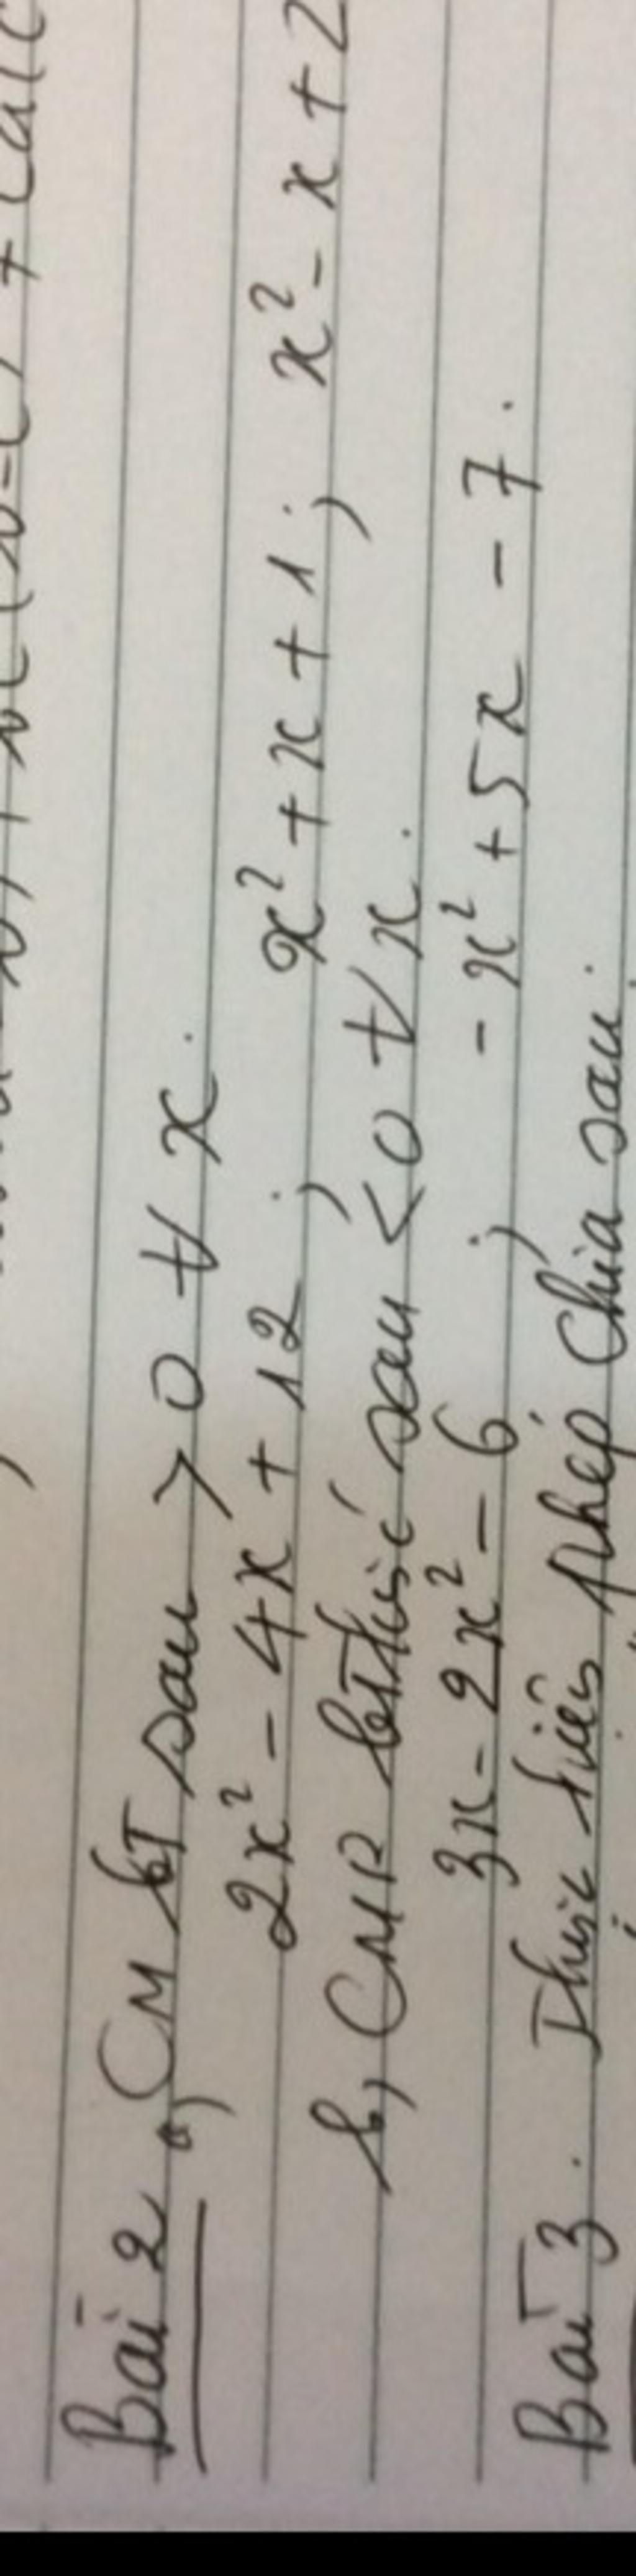 Bài 2 a, CM bT sau > 0 ∀ x.
2x² - 4x + 12 ; x² + x + 1 ; x² - x + 2
b, CMR bthức sau < 0 ∀ x.
3x - 2x² - 6 ; - x² + 5x - 7.
Bài 3. Thực hiện phép chia sau.